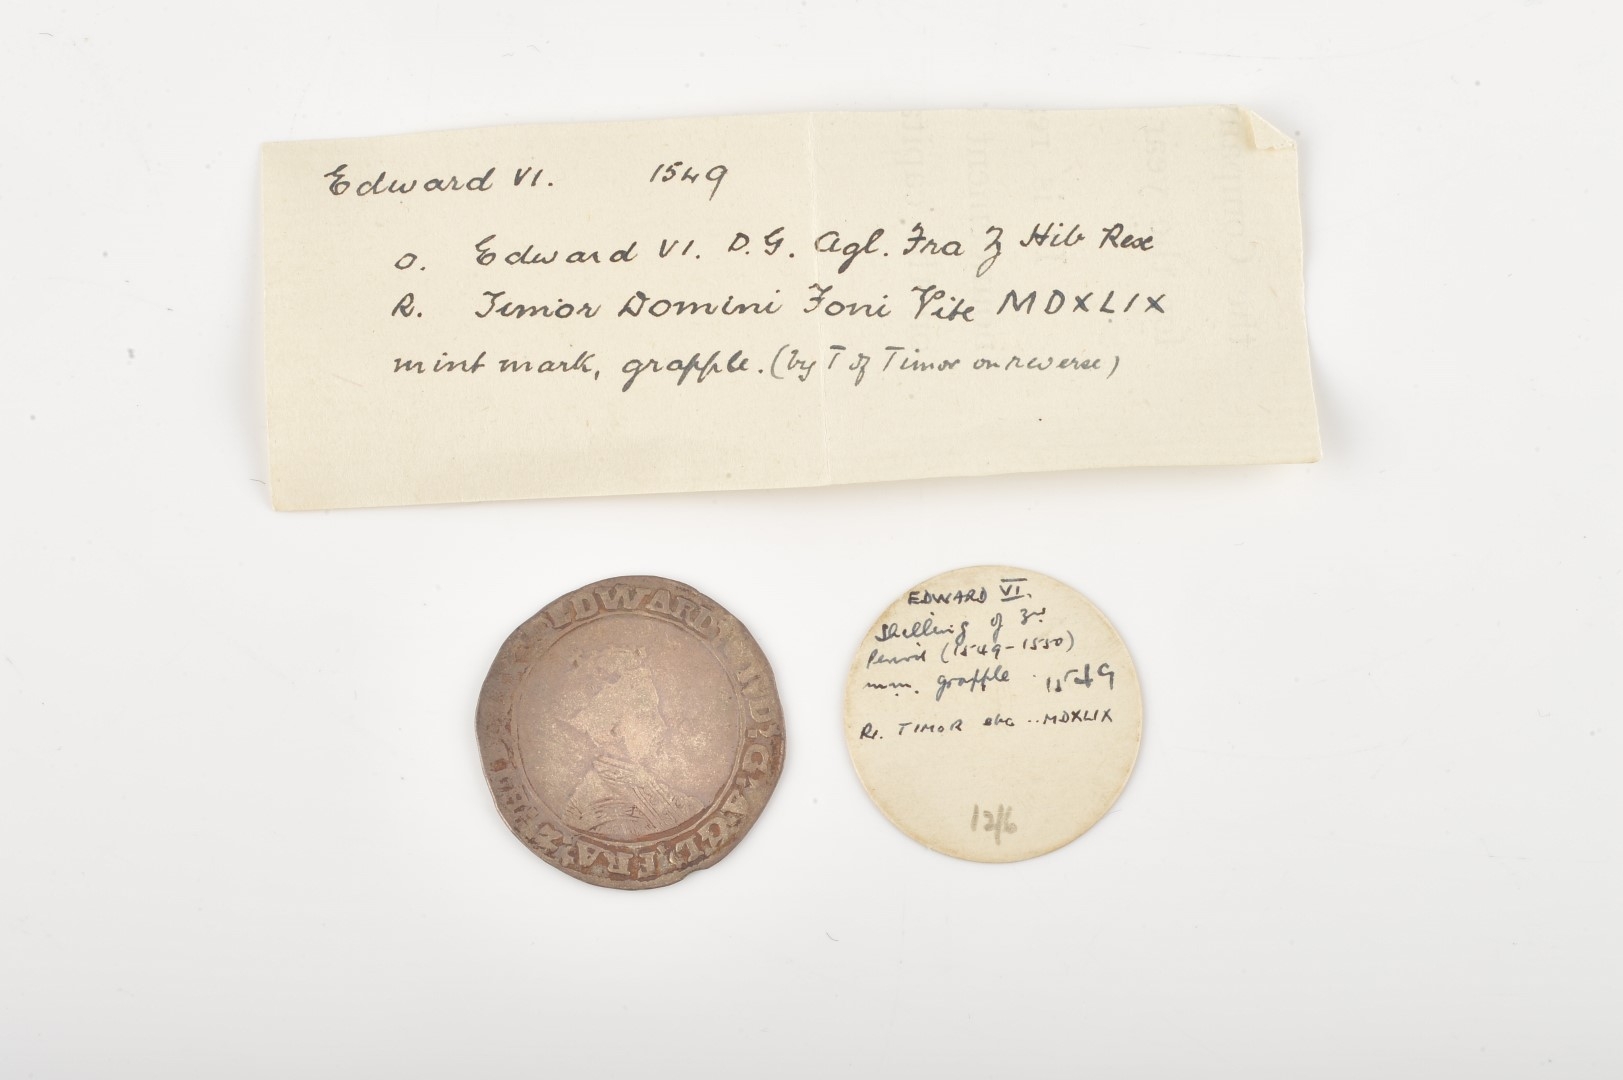 Edward VI. 1549
o. Edward VI. D.G. Agl. Fra Z Hib Rex
R. Timor Domini Foni Vite MDXLIX
mint mark, grapple. (by T of Timor on reverse)
EDWARD VI D: G: AGL: FRA: Z
EDWARD VI.
Shilling of 3rd
Period (1549-1550)
mm. grapple 1549
Rr. TIMOR etc .. MDXLIX
12/6